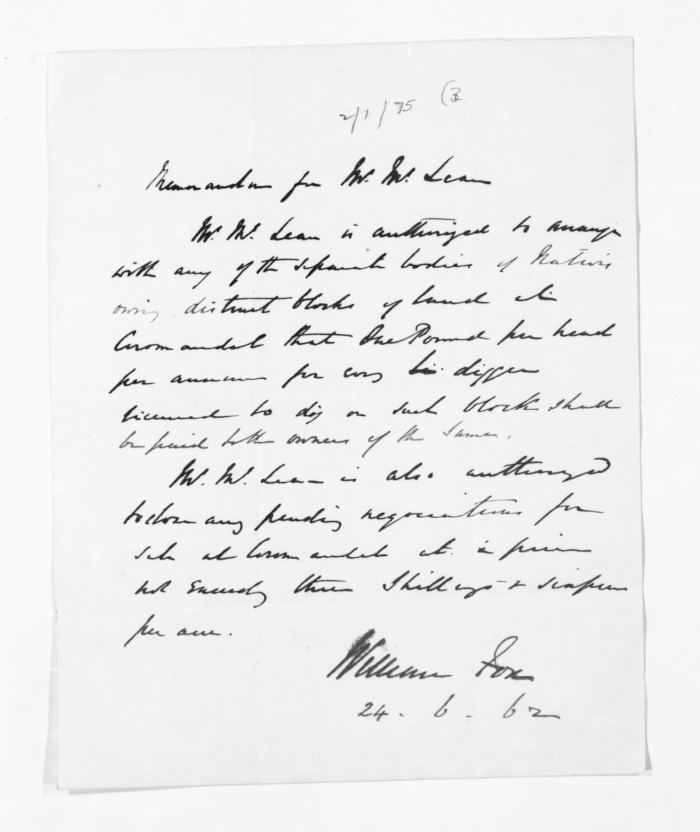 2/1/75 (3
Memorandum for Mr. McLean
Mr. McLean is authorized to arrange
with any of the separate bodies of Natives
owning distinct blocks of land at
Coromandel that One Pound per head
per annum for every digger
licensed to dig on such block shall
be paid to the owners of the same.
Mr. McLean is also authorized
to close any pending negociations for
sale at Coromandel at a price
not exceeding three Shillings & sixpence
per acre.
William Fox
24. 6. 62